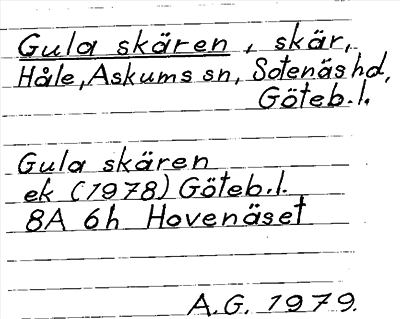 Gula skären, skär,
Håle, Askums sn, Sotenäs hd,
Göteb. l.
Gula skären
ek (1978) Göteb. l.
8A 6h Hovenäset
A.G. 1979.